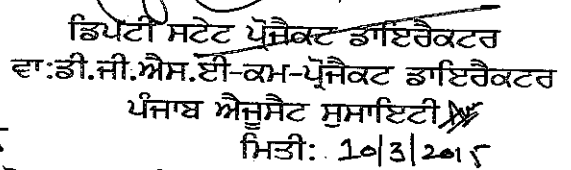 ਡਿਪਟੀ ਸਟੇਟ ਪ੍ਰੋਜੈਕਟ ਡਾਇਰੈਕਟਰ
ਵਾ:ਡੀ.ਜੀ.ਐਸ.ਈ-ਕਮ-ਪ੍ਰੋਜੈਕਟ ਡਾਇਰੈਕਟਰ
ਪੰਜਾਬ ਐਜੂਸੈਟ ਸੁਸਾਇਟੀ
ਮਿਤੀ: 10/3/2015